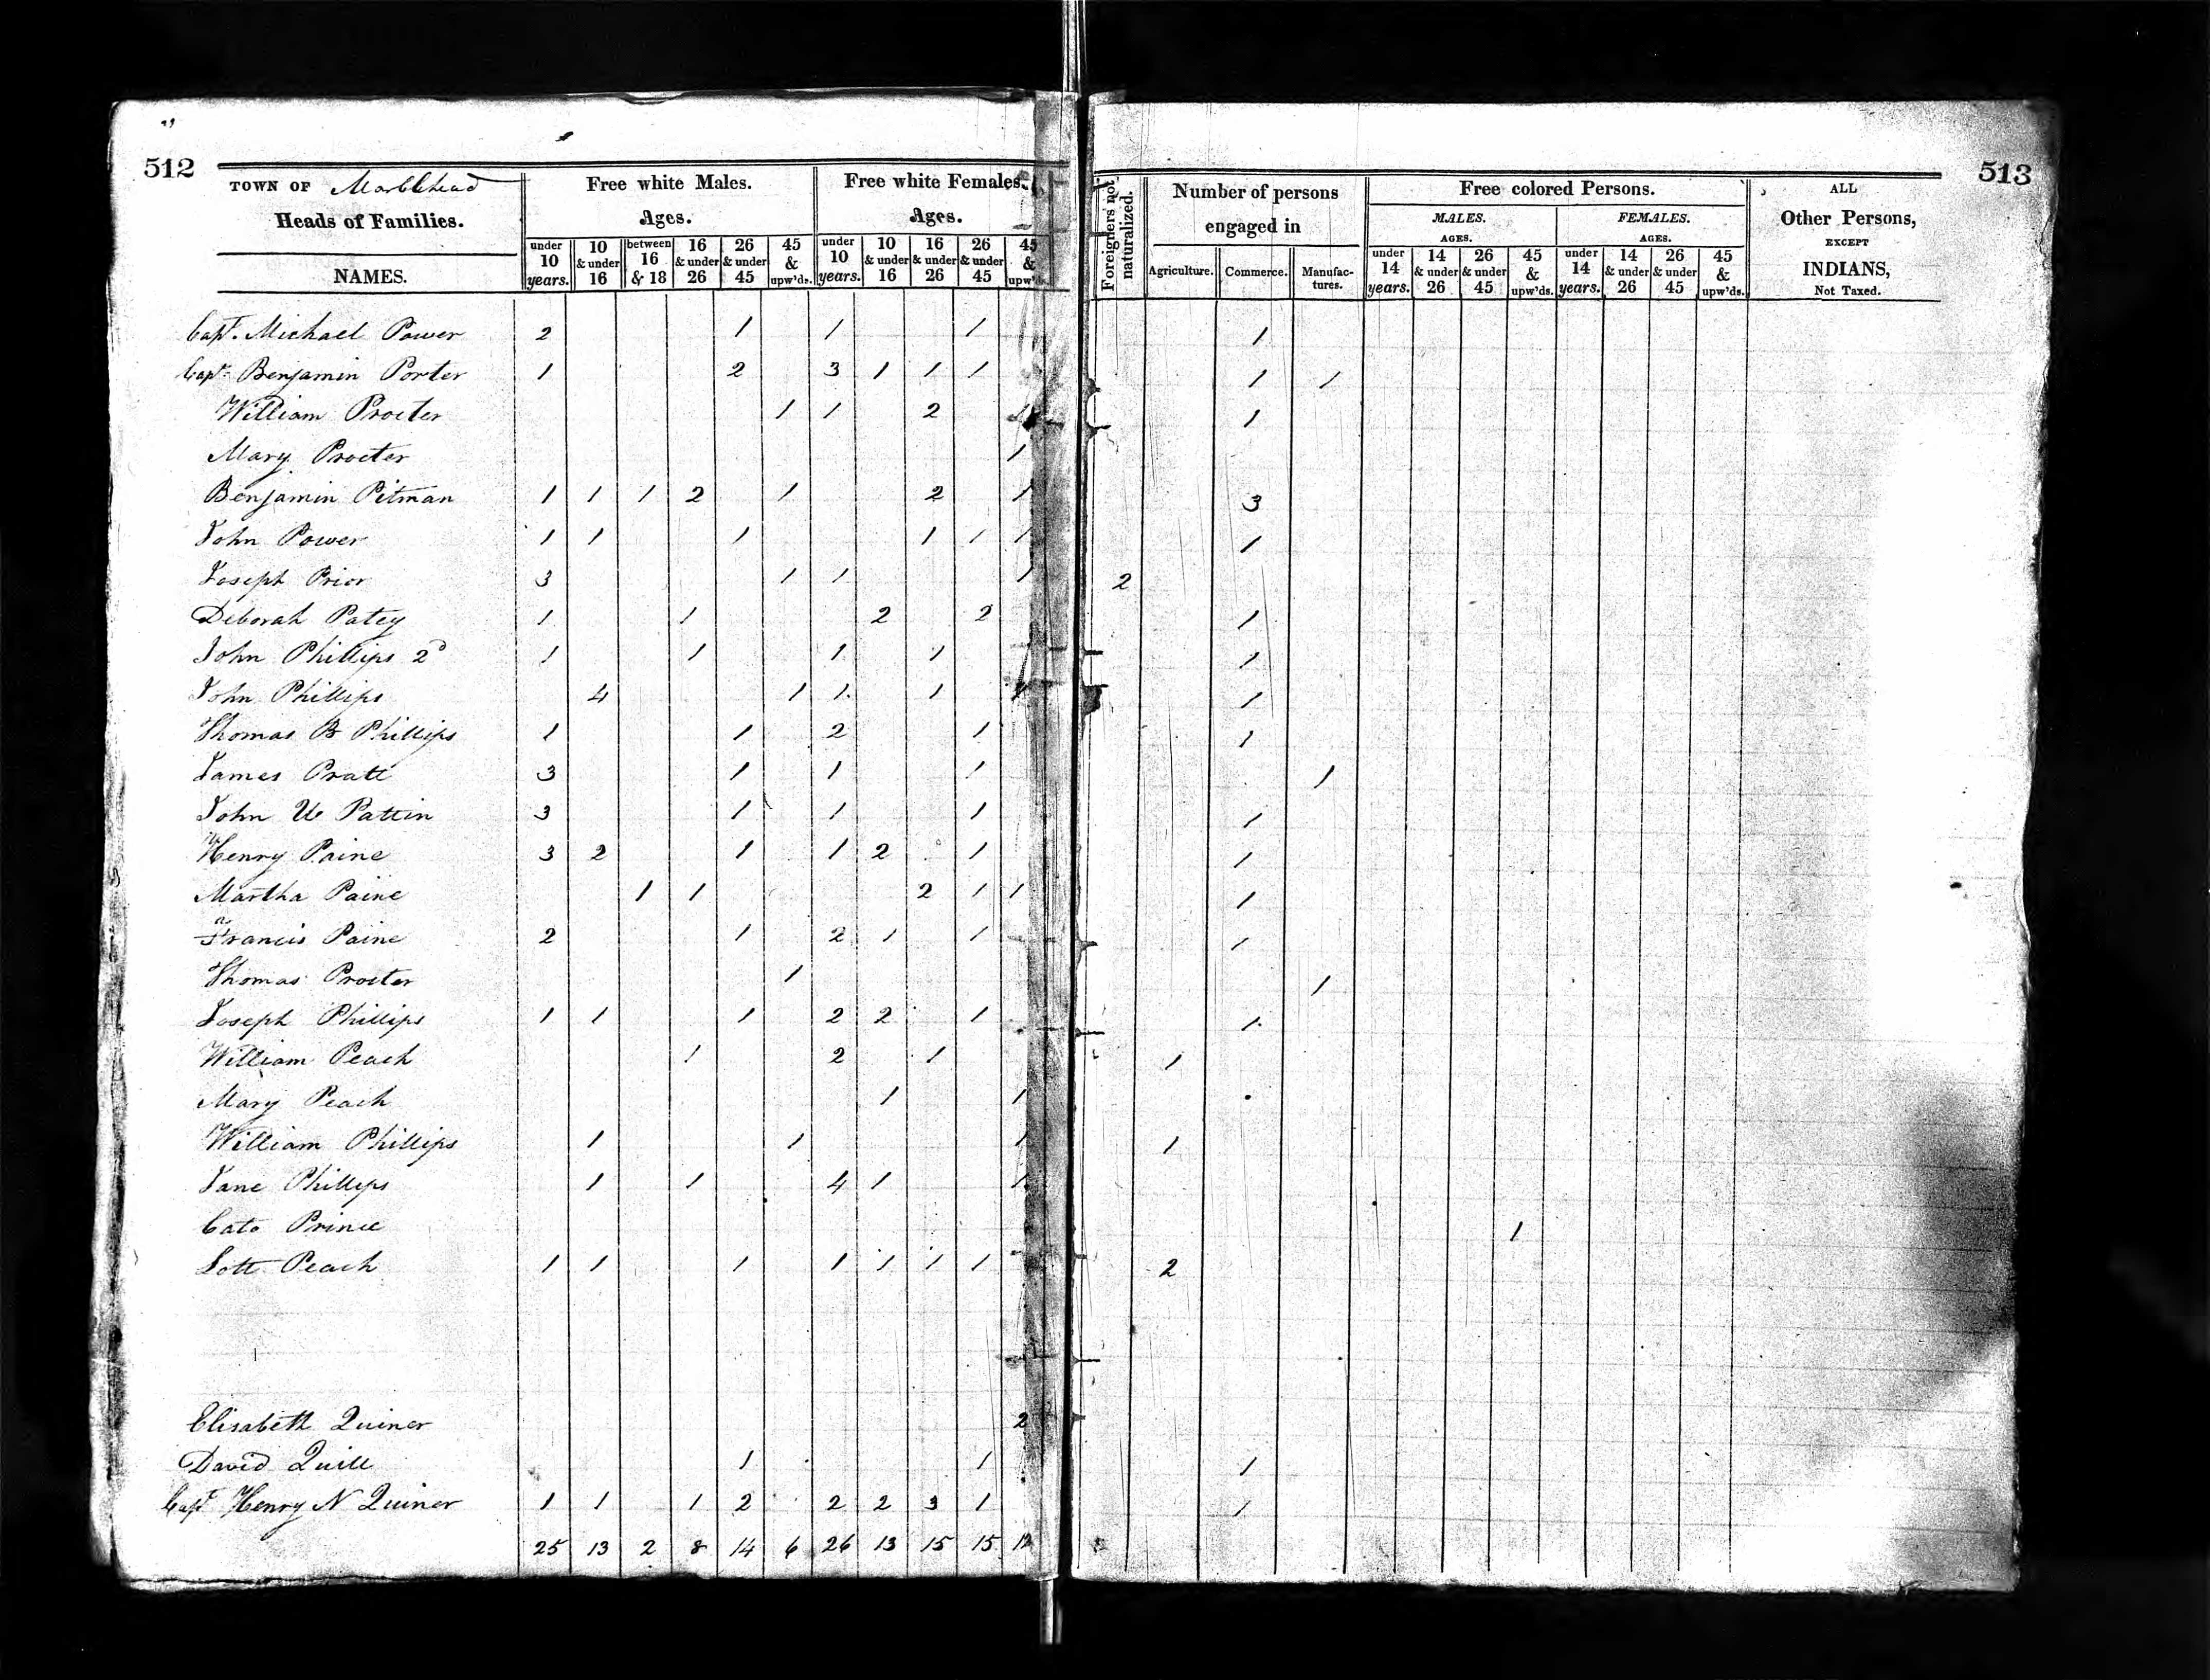 512
TOWN OF Marblehead
Heads of Families.
NAMES.
Free white Males.
Ages.
under 10 years. 10 & under 16 between 16 & 18 16 & under 26 26 & under 45 45 & upw'ds.
Free white Females.
Ages.
under 10 years. 10 & under 16 16 & under 26 26 & under 45 45 & upw'ds.
513
Foreigners not naturalized.
Number of persons engaged in
Agriculture. Commerce. Manufactures.
Free colored Persons.
MALES. AGES.
under 14 years. 14 & under 26 26 & under 45 45 & upw'ds.
FEMALES. AGES.
under 14 years. 14 & under 26 26 & under 45 45 & upw'ds.
ALL Other Persons, EXCEPT INDIANS, Not Taxed.
Capt. Michael Power 2 1 1 1 1
Capt. Benjamin Porter 1 2 3 1 1 1 1 1
William Procter 1 1 2 1 1
Mary Procter 1
Benjamin Pitman 1 1 1 2 1 2 1 3
John Power 1 1 1 1 1 1 1
Joseph Prior 3 1 1 1 2
Deborah Patey 1 1 2 2 1
John Phillips 2d 1 1 1 1 1
John Phillips 4 1 1 1 1 1
Thomas B Phillips 1 1 2 1 1
James Pratt 3 1 1 1 1
John W Pattin 3 1 1 1 1
Henry Paine 3 2 1 1 2 1 1
Martha Paine 1 1 2 1 1 1
Francis Paine 2 1 2 1 1 1
Thomas Procter 1 1
Joseph Phillips 1 1 1 2 2 1 1
William Peach 1 2 1 1
Mary Peach 1 1
William Phillips 1 1 1 1
Jane Phillips 1 1 4 1 1
Cato Prince 1
Lott Peach 1 1 1 1 1 1 1 2
Elisabeth Quiner 2
David Quill 1 1 1
Capt Henry N Quiner 1 1 1 2 2 2 3 1 1
25 13 2 8 14 6 26 13 15 15 12